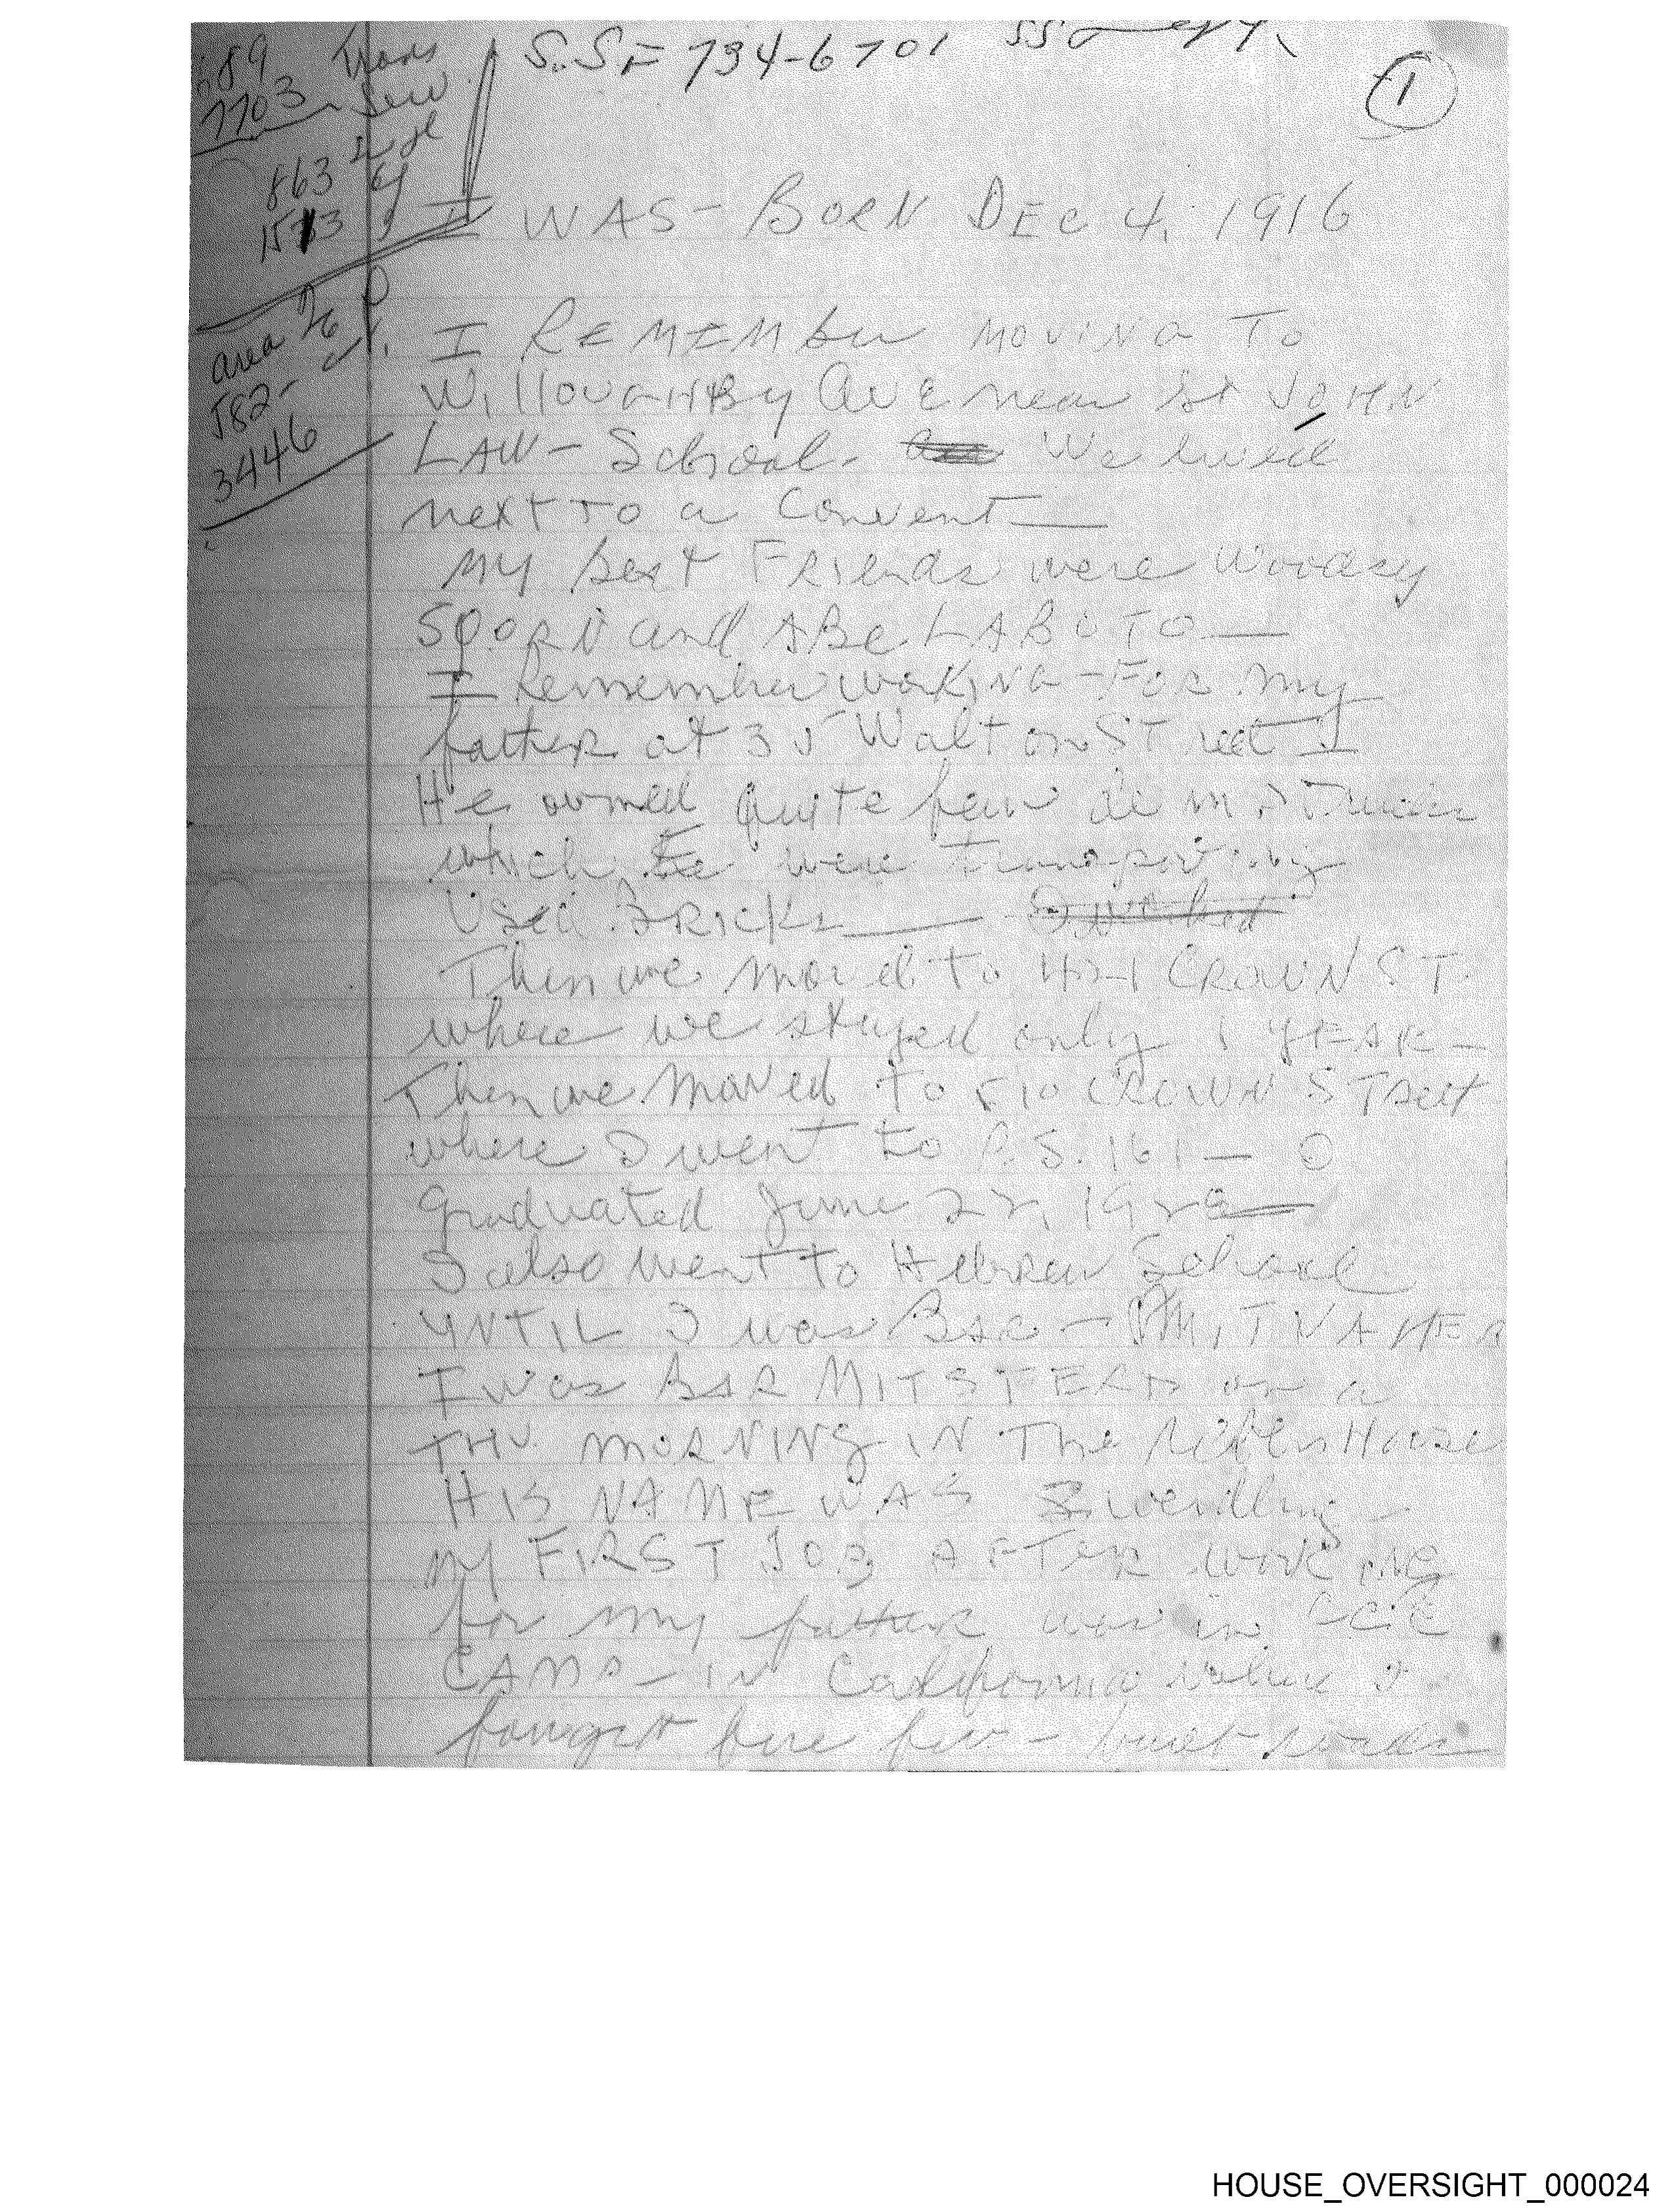 89 Trans
7703
863
1513
area
582-
3446
S.S = 734-6701
1
I WAS - BORN DEC 4, 1916
I REMEMber MOVING TO
WillOUGHBy Ave near St JOHN
LAW - School - We lived
next TO a Convent
My best FRIends were Woodsy
SPORN and ABe LABUTO
I Remember WORKING - FOR my
father at 35 Walton STreet I
He owned quite few
which were transporting
Used BRICKS
Then we moved to 421 CROWN ST
where we stayed only 1 YEAR -
Then we Moved to 510 CROWN STReet
where I went to P.S. 161 -
graduated June 22, 192
I also went to Hebrew School
UNTIL I was BAR - MITVAHED
I was BAR MITSFERD on a
THU MORNING IN The House
HIS NAME WAS
my FIRST JOB AFTER WORKING
for my father was in CCC
CAMP - IN California where I
fire - built roads
HOUSE_OVERSIGHT_000024